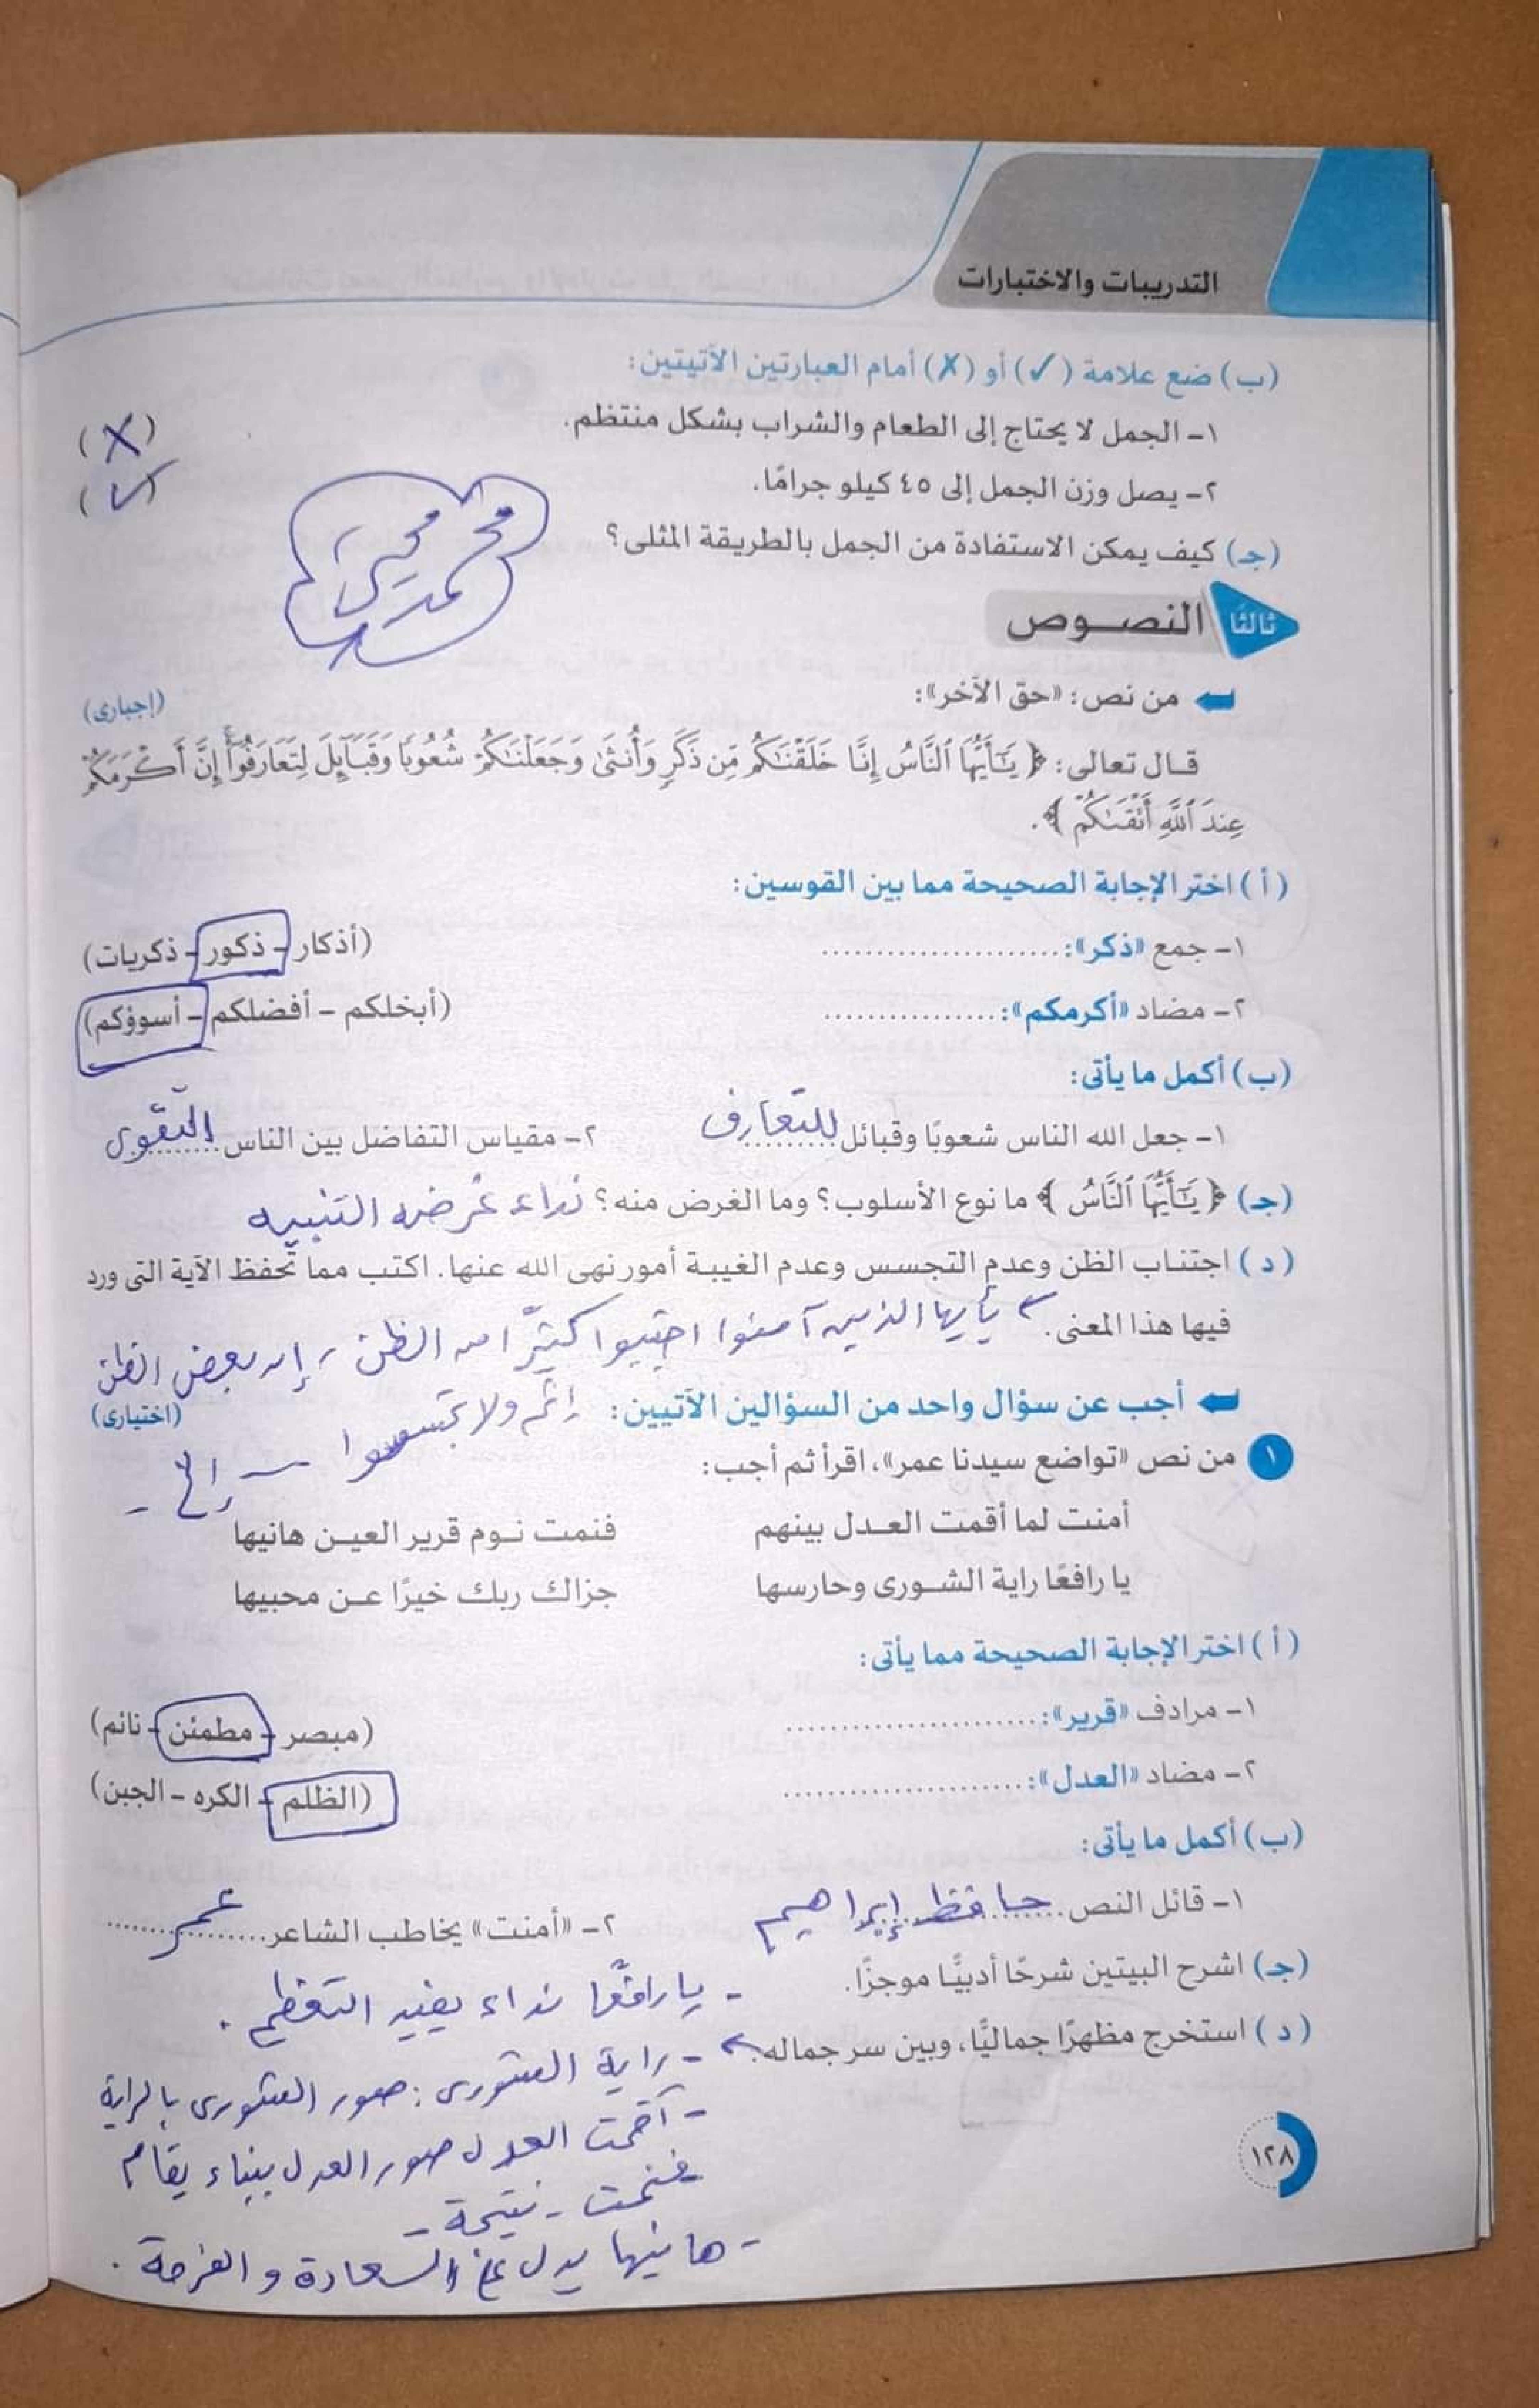 التدريبات والاختبارات
(ب) ضع علامة (✓) أو (✗) أمام العبارتين الآتيتين:
١- الجمل لا يحتاج إلى الطعام والشراب بشكل منتظم. (X)
٢- يصل وزن الجمل إلى ٤٥ كيلو جرامًا. (✓)
(جـ) كيف يمكن الاستفادة من الجمل بالطريقة المثلى؟
محمد
ثالثًا النصوص
من نص: «حق الآخر»: (إجبارى)
قال تعالى: ﴿ يَٰٓأَيُّهَا ٱلنَّاسُ إِنَّا خَلَقْنَٰكُم مِّن ذَكَرٍ وَأُنثَىٰ وَجَعَلْنَٰكُمْ شُعُوبًا وَقَبَآئِلَ لِتَعَارَفُوٓا۟ إِنَّ أَكْرَمَكُمْ
عِندَ ٱللَّهِ أَتْقَىٰكُمْ ﴾.
(أ) اختر الإجابة الصحيحة مما بين القوسين:
١- جمع «ذكر»: ..................... (أذكار - ذكور - ذكريات)
٢- مضاد «أكرمكم»: ................ (أبخلكم - أفضلكم - أسوؤكم)
(ب) أكمل ما يأتى:
١- جعل الله الناس شعوبًا وقبائل للتعارف ٢- مقياس التفاضل بين الناس التقوى
(جـ) ﴿ يَٰٓأَيُّهَا ٱلنَّاسُ ﴾ ما نوع الأسلوب؟ وما الغرض منه؟ نداء غرضه التنبيه
(د) اجتناب الظن وعدم التجسس وعدم الغيبة أمور نهى الله عنها. اكتب مما تحفظ الآية التى ورد
فيها هذا المعنى. يأيها الذين آمنوا اجتنبوا كثيرًا من الظن، إن بعض الظن
إثم ولا تجسسوا - إلخ -
أجب عن سؤال واحد من السؤالين الآتيين: (اختيارى)
١ من نص «تواضع سيدنا عمر»، اقرأ ثم أجب:
أمنت لما أقمت العدل بينهم فنمت نوم قرير العين هانيها
يا رافعًا راية الشورى وحارسها جزاك ربك خيرًا عن محبيها
(أ) اختر الإجابة الصحيحة مما يأتى:
١- مرادف «قرير»: ..................... (مبصر - مطمئن - نائم)
٢- مضاد «العدل»: ..................... (الظلم - الكره - الجبن)
(ب) أكمل ما يأتى:
١- قائل النص حافظ إبراهيم ٢- «أمنت» يخاطب الشاعر عمر
(جـ) اشرح البيتين شرحًا أدبيًّا موجزًا.
- يا رافعًا نداء يفيد التعظيم.
(د) استخرج مظهرًا جماليًّا، وبين سر جماله.
- راية الشورى: صور الشورى بالراية
- أقمت العدل صور العدل ببناء يقام
فنمت - نتيجة -
- هانيها يدل على السعادة والفرحة.
١٢٨